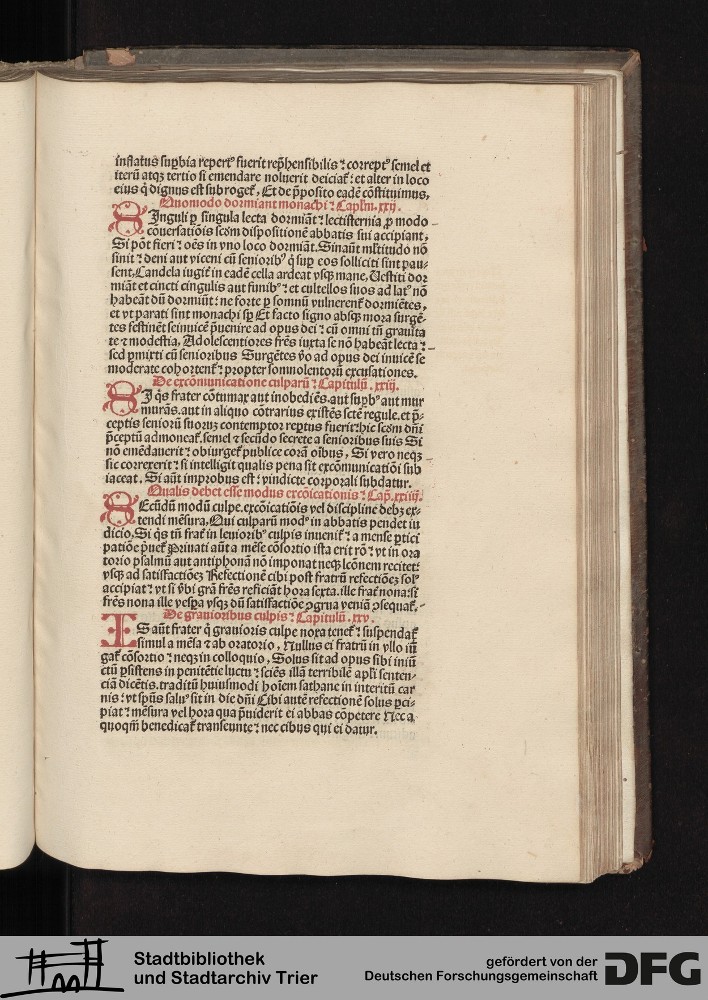 inflatus suꝑbia reperť fuerit rep̃hensibilis ⁊ correptꝰ semel et
iterũ atqꝫ tertio si emendare noluerit deiciať : et alter in loco
eius q̇ dignus est subrogeť, Et de p̃posito eadẽ cõstituimus,
Quomodo dormiant monachi ⁊ Caplm̃. xxij.
SInguli ꝑ singula lecta dormiãt ⁊ lectisternia ꝓ modo
cõuersatiõis scďm dispositionẽ abbatis sui accipiant,
Si põt fieri ⁊ oẽs in vno loco dormiãt. Sinaũt mľtitudo nõ
sinit ⁊ deni aut viceni cũ senioribꝰ q̇ suꝑ eos solliciti sint pau-
sent, Candela iugiť in eadẽ cella ardeat vsqꝫ mane, Uestiti dor
miãt et cincti cingulis aut funibꝰ ⁊ et cultellos suos ad latꝰ nõ
habeãt dũ dormiũt : ne forte ꝑ somnũ vulnerenť dormiẽtes,
et vt parati sint monachi sꝑ Et facto signo absqꝫ mora surgẽ-
tes festinẽt seinuicẽ p̃uenire ad opus dei ⁊ cũ omni tñ grauita
te ⁊ modestia, Adolescentiores frẽs iuxta se nõ habeãt lecta ⁊
sed ꝑmixti cũ senioribus Surgẽtes v̊o ad opus dei inuicẽ se
moderate cohortenť ⁊ propter somnolentorũ excusationes.
De excõmunicatione culparũ ⁊ Capitulũ. xxiij.
SI q̇s frater cõtumax aut inobediẽs. aut suꝑbꝰ aut mur
murãs. aut in aliquo cõtrarius existẽs sctẽ regule. et p̃-
ceptis seniorũ suoꝝ contemptor reptus fuerit : hic scďm dñi
p̃ceptũ admoneať. semel ⁊ secũdo secrete a senioribus suis Si
nõ emẽdauerit ⁊ obiurgeť publice corã oĩbus, Si vero neqꝫ
sic correxerit ⁊ si intelligit qualis pena sit excõmunicatiõi sub
iaceat. Si aũt improbus est : vindicte corporali subdatur.
Qualis debet esse modus excõicationis ⁊ Cap̃. xxiiij.
SEcũdũ modũ culpe. excõicatiõis vel discipline debꝫ ex-
tendi mẽsura, Qui culparũ modꝰ in abbatis pendet iu
dicio, Si q̇s tñ frať in leuioribꝰ culpis inueniť ⁊ a mense ꝑtici
patiõe p̃ueť Priuati aũt a mẽse cõsortio ista erit rõ ⁊ vt in ora
torio psalmũ aut antiphonã nõ imponat neqꝫ lcõnem recitet :
vsqꝫ ad satisfactiõeꝫ Refectionẽ cibi post fratrũ refectiõeꝫ solꝰ
accipiat ⁊ vt si v̊bi grã frẽs reficiãt hora sexta. ille frať nona : si
frẽs nona ille vesꝑa vsqꝫ dũ satisfactiõe ꝯgrua veniã ꝯsequať.
De grauioribus culpis ⁊ Capitulũ. xxv.
IS aũt frater q̇ grauioris culpe noxa teneť ⁊ suspendať
simul a mẽsa ⁊ ab oratorio, Nullus ei fratrũ in vllo iũ
gať cõsortio ⁊ neqꝫ in colloquio, Solus sit ad opus sibi iniũ
ctũ ꝑsistens in penitẽtie luctu ⁊ sciẽs illã terribilẽ apľi senten-
ciã dicẽtis. traditũ huiusmodi hoĩem sathane in interitũ car
nis : vt spũs saluꝰ sit in die dñi Cibi autẽ refectionẽ solus ꝑci-
piat ⁊ mẽsura vel hora qua p̃uiderit ei abbas cõpetere Nec a
quoqm̃ benedicať transeunte ⁊ nec cibus qui ei datur.
Stadtbibliothek
und Stadtarchiv Trier
gefördert von der
Deutschen Forschungsgemeinschaft
DFG